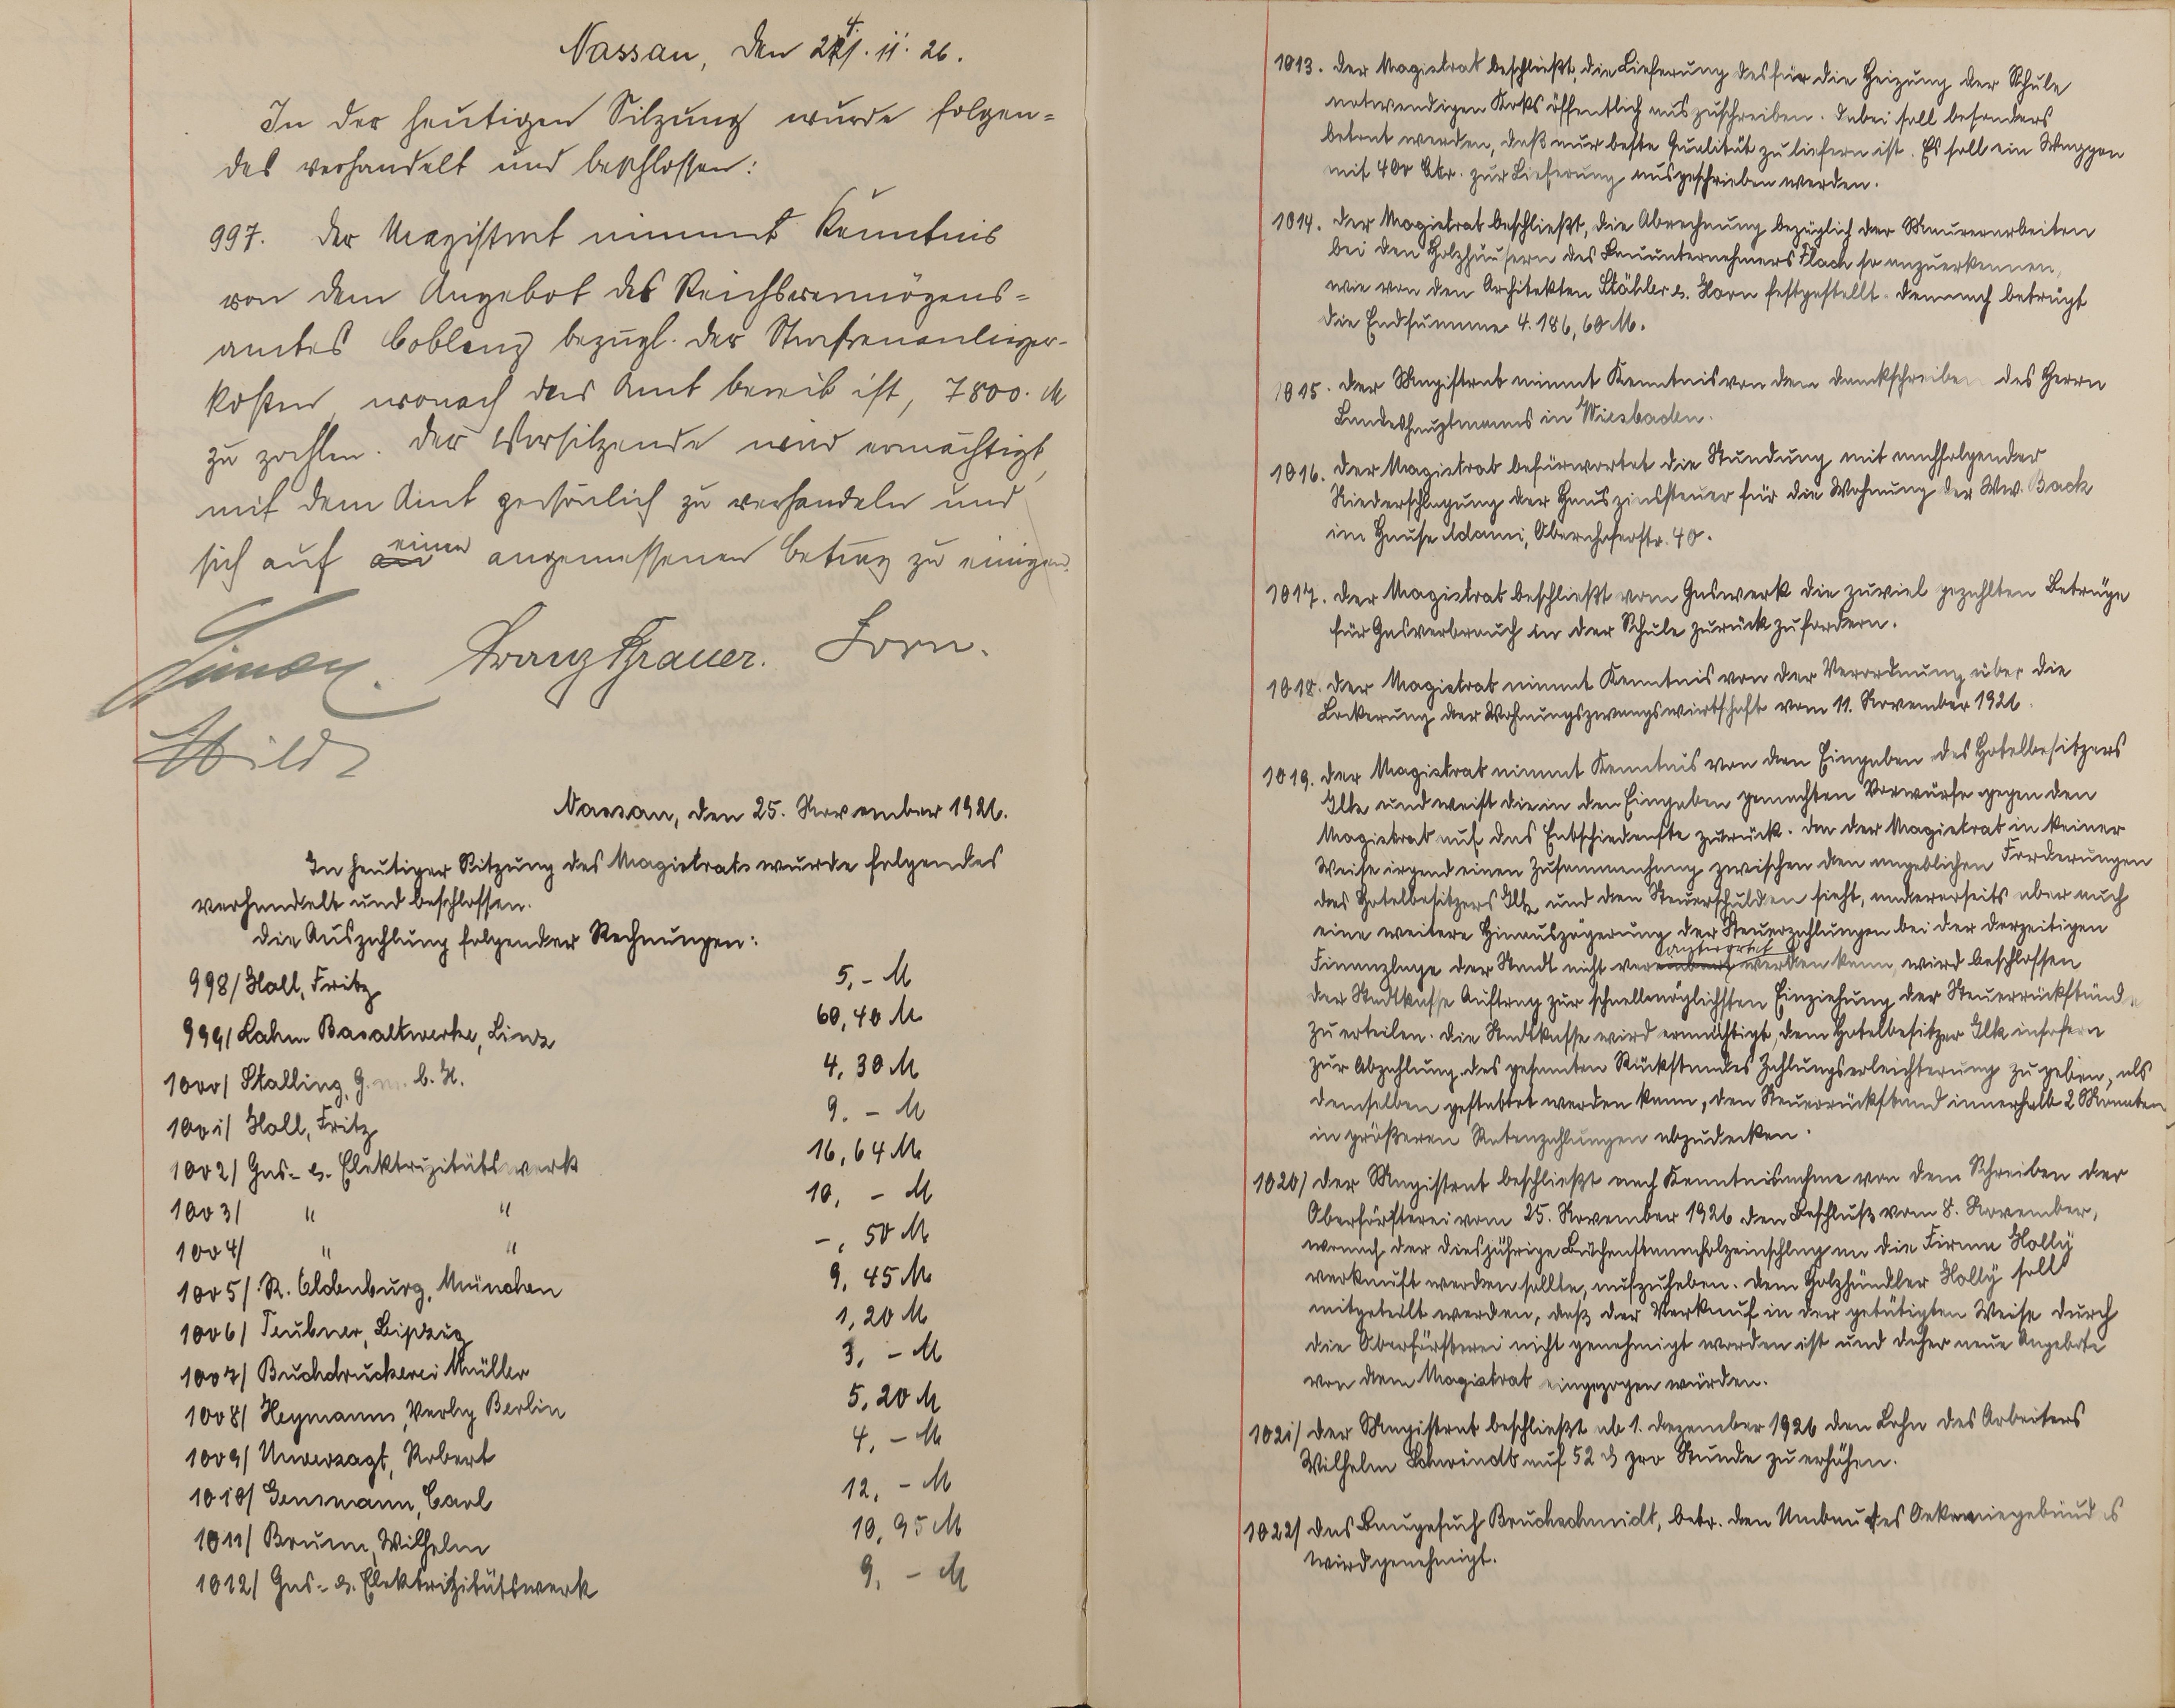 Nassau, den 24. 11. 26.
In der heutigen Sitzung wurde folgen=
des verhandelt und beschlossen:
997. Der Magistrat nimmt Kenntnis
von dem Angebot des Reichsvermögens=
amtes Coblenz bezügl. der Straßenanlieger-
kosten, wonach das Amt bereit ist, 7800. M
zu zahlen. Der Vorsitzende wird ermächtigt,
mit dem Amt persönlich zu verhandeln und
sich auf einen angemessenen Betrag zu einigen.
Franz Grauer. Horn.
Wild
Nassau, den 25. November 1926.
In heutiger Sitzung des Magistrats wurde folgendes
verhandelt und beschlossen.
Die Auszahlung folgender Rechnungen:
998/ Holl, Fritz 5,- M
999/ Lahn Basaltwerke, Linz 60,40 M
1000/ Stalling, G.m.b.H. 4,30 M
1001/ Holl, Fritz 9.- M
1002/ Gas- u. Elektrizitätswerk 16,64 M
1003/ " " 10,- M
1004/ " " -,50 M
1005/ R. Oldenburg, München 9,45 M
1006/ Teubner, Leipzig 1,20 M
1007/ Buchdruckerei Müller 3,- M
1008/ Heymanns, Verlag Berlin 5,20 M
1009/ Unverzagt, Robert 4,- M
1010/ Gensmann, Carl 12,- M
1011/ Brunn, Wilhelm 10,95 M
1012/ Gas- u. Elektrizitätswerk 9,- M
1013. Der Magistrat beschließt, die Lieferung des für die Heizung der Schule
notwendigen Koks öffentlich auszuschreiben. Dabei soll besonders
betont werden, daß nur beste Qualität zu liefern ist. Es soll ein Waggon
mit 400 Ctr. zur Lieferung ausgeschrieben werden.
1014. Der Magistrat beschließt, die Abrechnung bezüglich der Maurerarbeiten
bei den Holzhäusern des Bauunternehmers Flach so anzuerkennen,
wie von den Architekten Stähler u. Horn festgestellt. Demnach beträgt
die Endsumme 4.186,60 M.
1015. Der Magistrat nimmt Kenntnis von dem Dankschreiben des Herrn
Landeshauptmanns in Wiesbaden.
1016. Der Magistrat befürwortet die Stundung mit nachfolgender
Niederschlagung der Hauszinssteuer für die Wohnung der Ww. Back
im Hause Adami, Obernhoferstr. 40.
1017. Der Magistrat beschließt vom Gaswerk die zuviel gezahlten Beträge
für Gasverbrauch in der Schule zurückzufordern.
1018. Der Magistrat nimmt Kenntnis von der Verordnung über die
Lockerung der Wohnungszwangswirtschaft vom 11. November 1926.
1019. Der Magistrat nimmt Kenntnis von den Eingaben des Hotelbesitzers
Ilk und weist die in den Eingaben gemachten Vorwürfe gegen den
Magistrat auf das Entschiedenste zurück. Da der Magistrat in keiner
Weise irgend einen Zusammenhang zwischen den angeblichen Forderungen
des Hotelbesitzers Ilk und den Steuerschulden sieht, andererseits aber auch
eine weitere Hinauszögerung der Steuerzahlungen bei der derzeitigen
Finanzlage der Stadt nicht verantwortet werden kann, wird beschlossen
der Stadtkasse Auftrag zur schnellmöglichsten Einziehung der Steuerrückstände
zu erteilen. Die Stadtkasse wird ermächtigt, dem Hotelbesitzer Ilk insofern
zur Abzahlung des gesamten Rückstandes Zahlungserleichterung zu geben, als
demselben gestattet werden kann, den Steuerrückstand innerhalb 2 Monaten
in größeren Ratenzahlungen abzudecken.
1020/ Der Magistrat beschließt nach Kenntnisnahme von dem Schreiben der
Oberförsterei vom 25. November 1926 den Beschluß vom 8. November,
wonach der diesjährige Buchenstammholzeinschlag an die Firma Holly
verkauft werden sollte, aufzuheben. Dem Holzhändler Holly soll
mitgeteilt werden, daß der Verkauf in der getätigten Weise durch
die Oberförsterei nicht genehmigt worden ist und daher neue Angebote
von dem Magistrat eingezogen würden.
1021/ Der Magistrat beschließt ab 1. Dezember 1926 den Lohn des Arbeiters
Wilhelm Schwindt auf 52 ₰ pro Stunde zu erhöhen.
1022/ Das Baugesuch Bruchschmidt, betr. den Umbau des Oekonomiegebäudes
wird genehmigt.